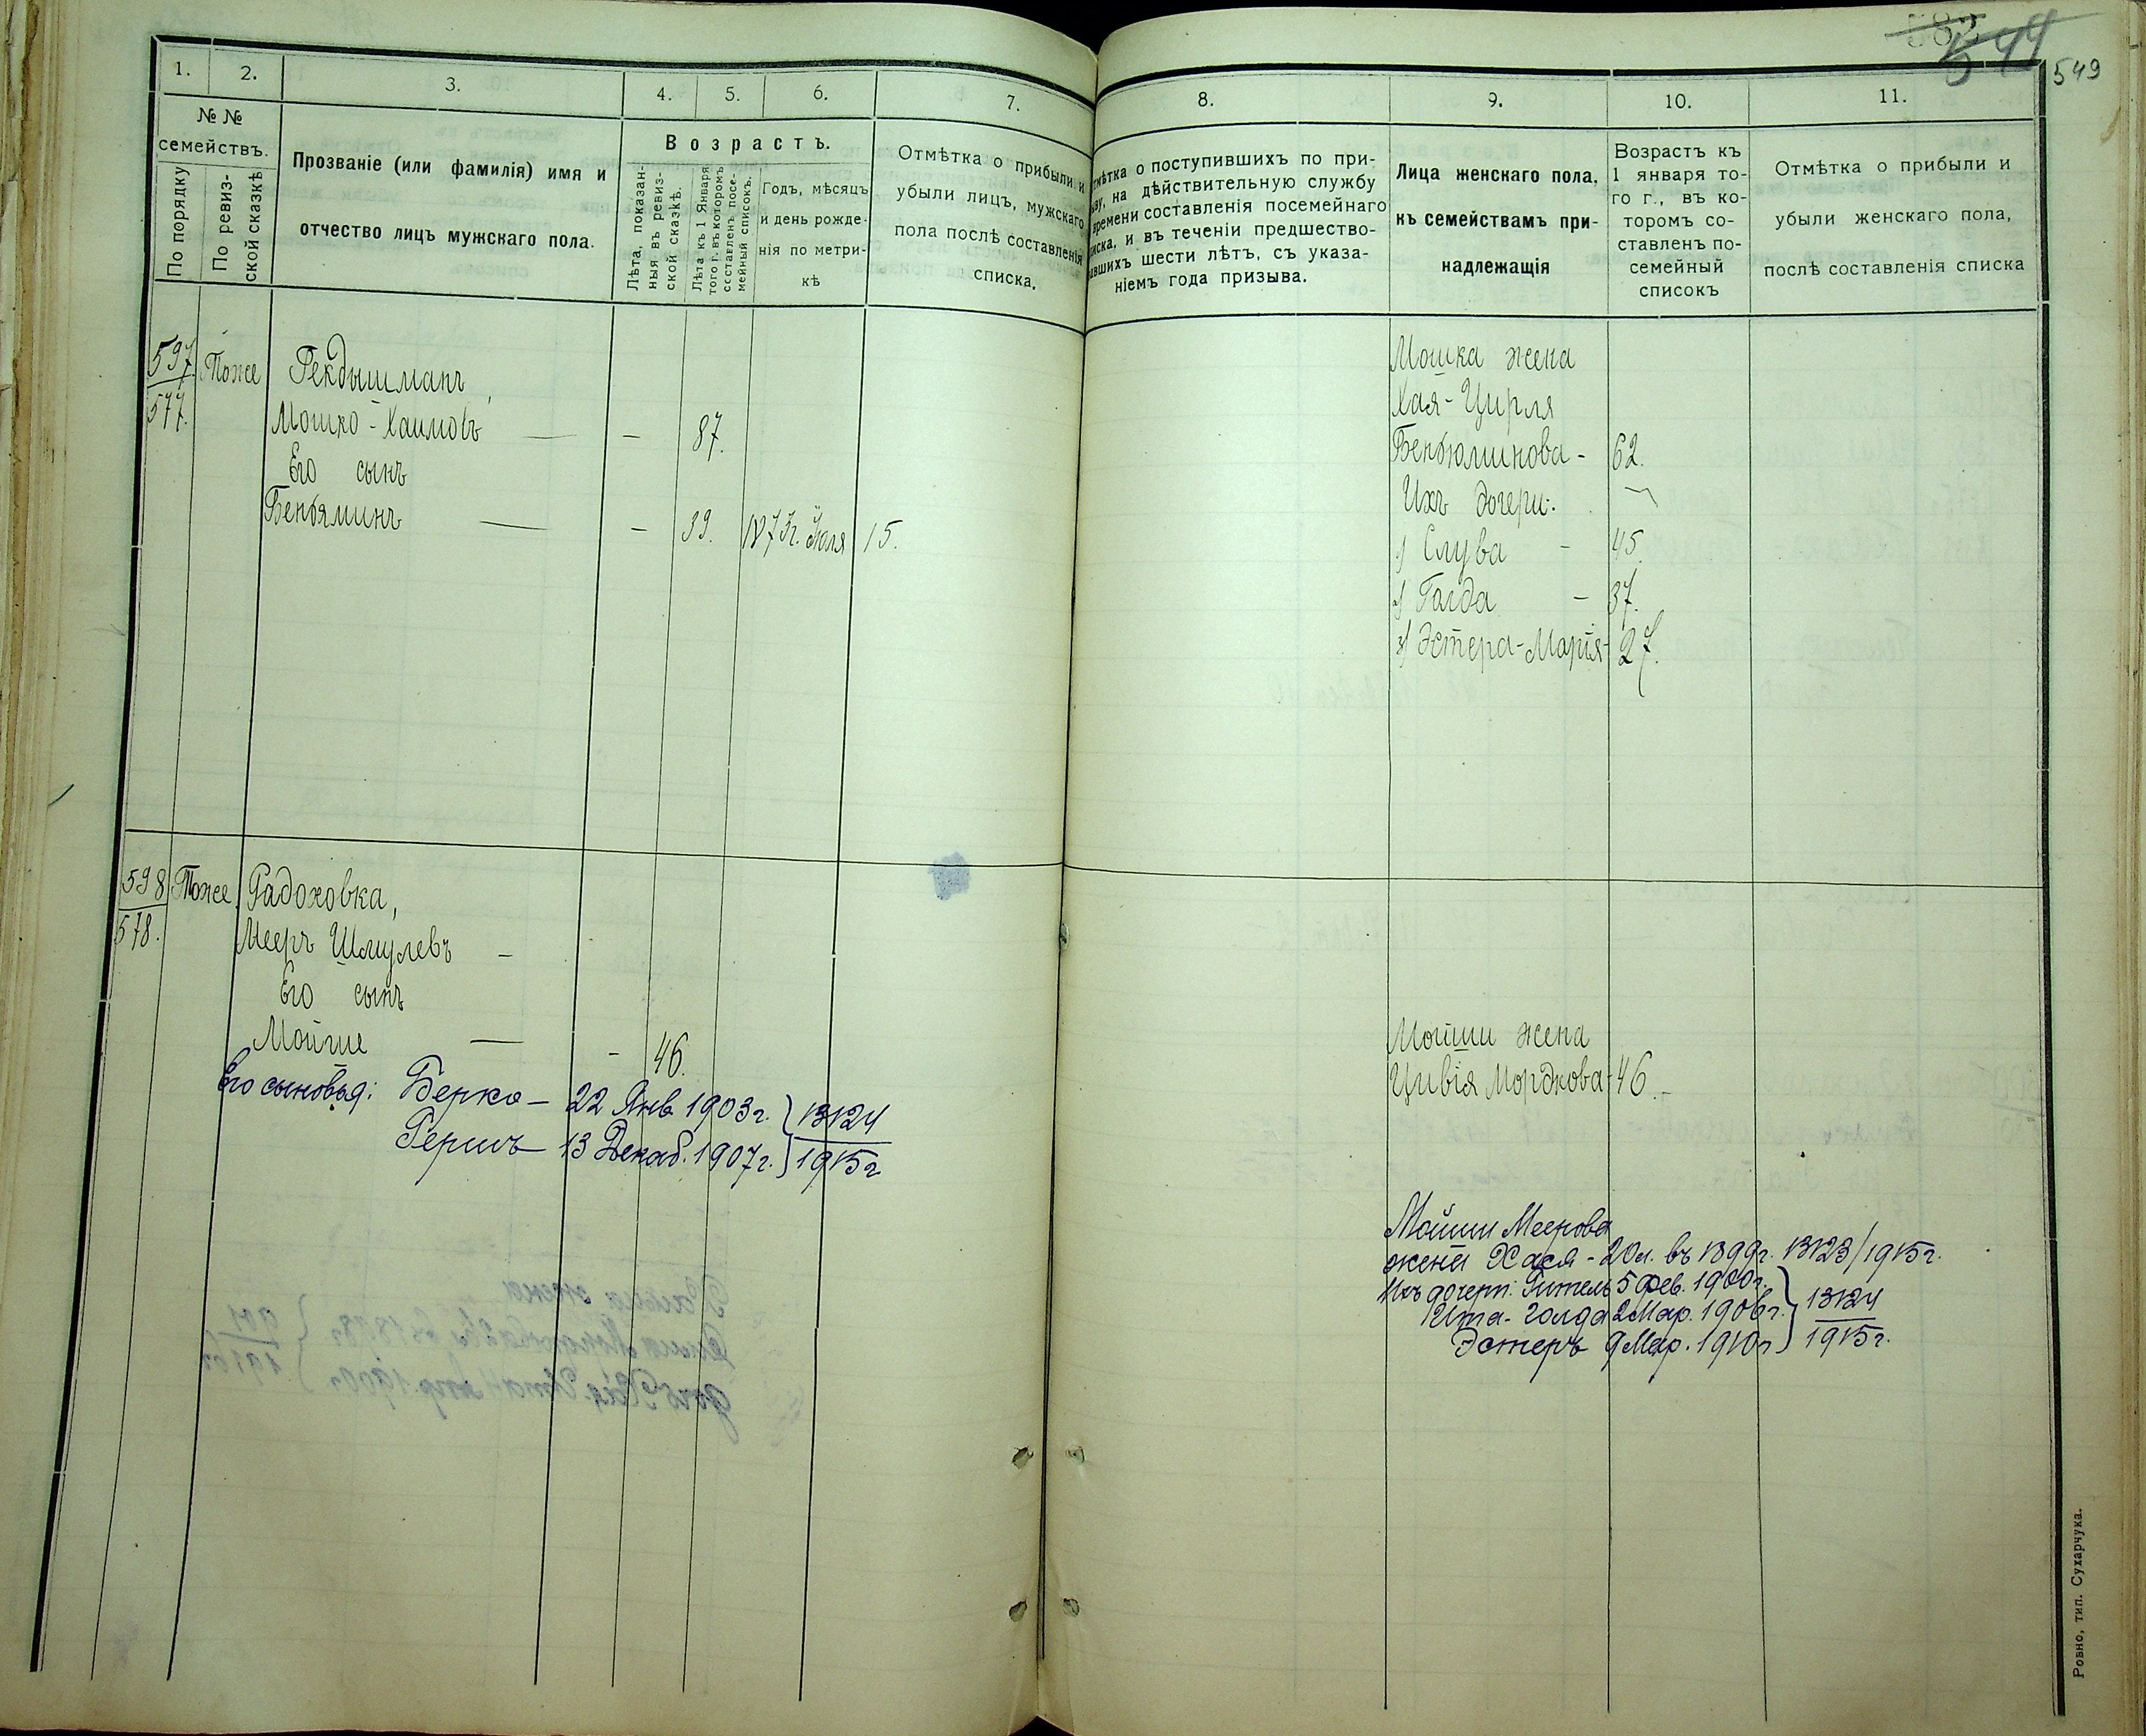 582
544
549
1.
2.
3.
4.
5.
6.
7.
№ №
семействъ.
По порядку
По ревиз-
ской сказкѣ
Прозваніе (или фамилія) имя и
отчество лицъ мужскаго пола.
Возрастъ.
Лѣта, показан-
ныя въ ревиз-
ской сказкѣ.
Лѣта къ 1 Января
того г. въ которомъ
составленъ посе-
мейный списокъ.
Годъ, мѣсяцъ
и день рожде-
нія по метри-
кѣ
Отмѣтка о прибыли и
убыли лицъ, мужскаго
пола послѣ составленія
списка.
597
577.
Тоже
Рекдышманъ,
Мошко-Хаимовъ — — 87.
Его сынъ
Бенбяминъ — — 39. 1873г. Іюля 15.
598
578.
Тоже
Радоховка,
Мееръ Шмулевъ —
Его сынъ
Мойше — - 46.
Его сыновья: Берко — 22 Янв. 1903г. } 13124
Гершъ — 13 Декаб. 1907г. } 1915г
8.
9.
10.
11.
тмѣтка о поступившихъ по при-
ву, на дѣйствительную службу
времени составленія посемейнаго
иска, и въ теченіи предшество-
авшихъ шести лѣтъ, съ указа-
ніемъ года призыва.
Лица женскаго пола,
къ семействамъ при-
надлежащія
Возрастъ къ
1 января то-
го г., въ ко-
торомъ со-
ставленъ по-
семейный
списокъ
Отмѣтка о прибыли и
убыли женскаго пола,
послѣ составленія списка
Мошка жена
Хая-Цирля
Бенбюминова - 62.
Ихъ дочери:
1) Слува - 45.
2) Голда - 37.
3) Эстера-Марія - 27.
Мойши жена
Цивія Мордкова - 46.-
Мойши Меерова
жена Хася - 20л. въ 1899г. 13123/1915г.
Ихъ дочери: Гитель 5 фев. 1900г. }
Ита-Голда 2 Мар. 1906г. } 13124
Эстеръ 9 Мар. 1910г } 1915г.
Ровно, тип. Сухарчука.